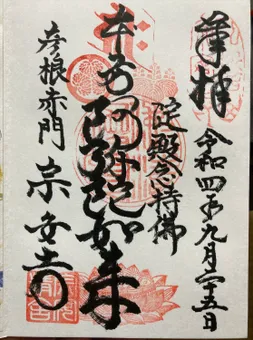 奉拝
令和四年九月二十五日
淀殿念持佛
本尊阿弥陀如来
彦根赤門
宗安寺